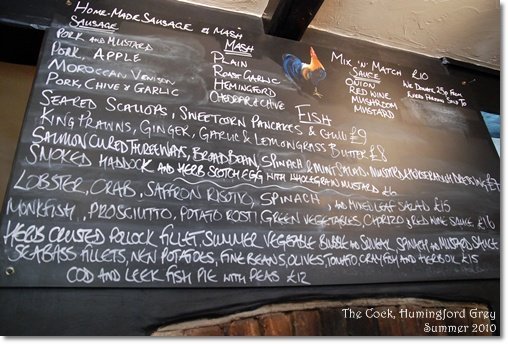 HOME-MADE SAUSAGE & MASH
SAUSAGE
PORK AND MUSTARD
PORK, APPLE
MOROCCAN VENISON
PORK, CHIVE & GARLIC
MASH
PLAIN
ROAST GARLIC
HEMINGFORD
CHEDDAR & CHIVE
MIX 'N' MATCH £10
SAUCE
ONION
RED WINE
MUSHROOM
MUSTARD
WE DONATE 25p FROM
EVERY SOLD TO
FISH
SEARED SCALLOPS, SWEETCORN PANCAKES & CHILLI £9
KING PRAWNS, GINGER, GARLIC & LEMONGRASS BUTTER £8
SALMON CURED THREE WAYS, BROAD BEAN, SPINACH & MINT SALAD, MUSTARD DRESSING £7
SMOKED HADDOCK AND HERB SCOTCH EGG WITH WHOLEGRAIN MUSTARD £6
LOBSTER, CRAB, SAFFRON RISOTTO, SPINACH, AND MIXED LEAF SALAD £15
MONKFISH, PROSCIUTTO, POTATO ROSTI, GREEN VEGETABLES, CHORIZO & RED WINE SAUCE, £16
HERB CRUSTED POLLOCK FILLET, SUMMER VEGETABLE BUBBLE AND SQUEAK, SPINACH AND MUSTARD SAUCE
SEABASS FILLETS, NEW POTATOES, FINE BEANS, OLIVES, TOMATO, CRAYFISH AND HERB OIL £15
COD AND LEEK FISH PIE WITH PEAS £12
The Cock, Humingford Grey
Summer 2010